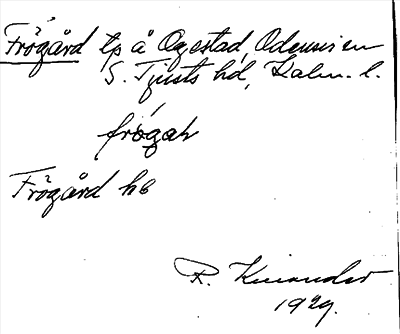 Frögård tp å Ogestad, Odensvi en
S. Tjusts hd, Kalm. l.
frögaṙ
Frögård hb
R. Kinander
1929.